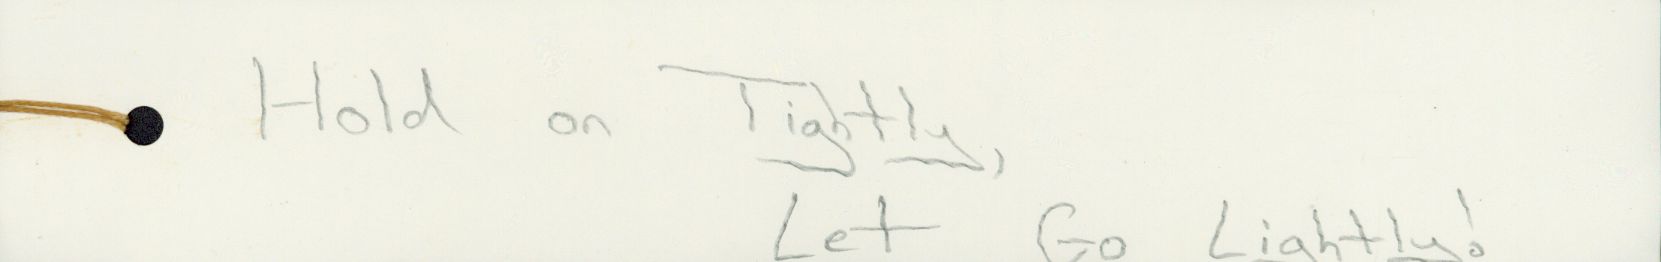 Hold on Tightly,
Let Go Lightly!